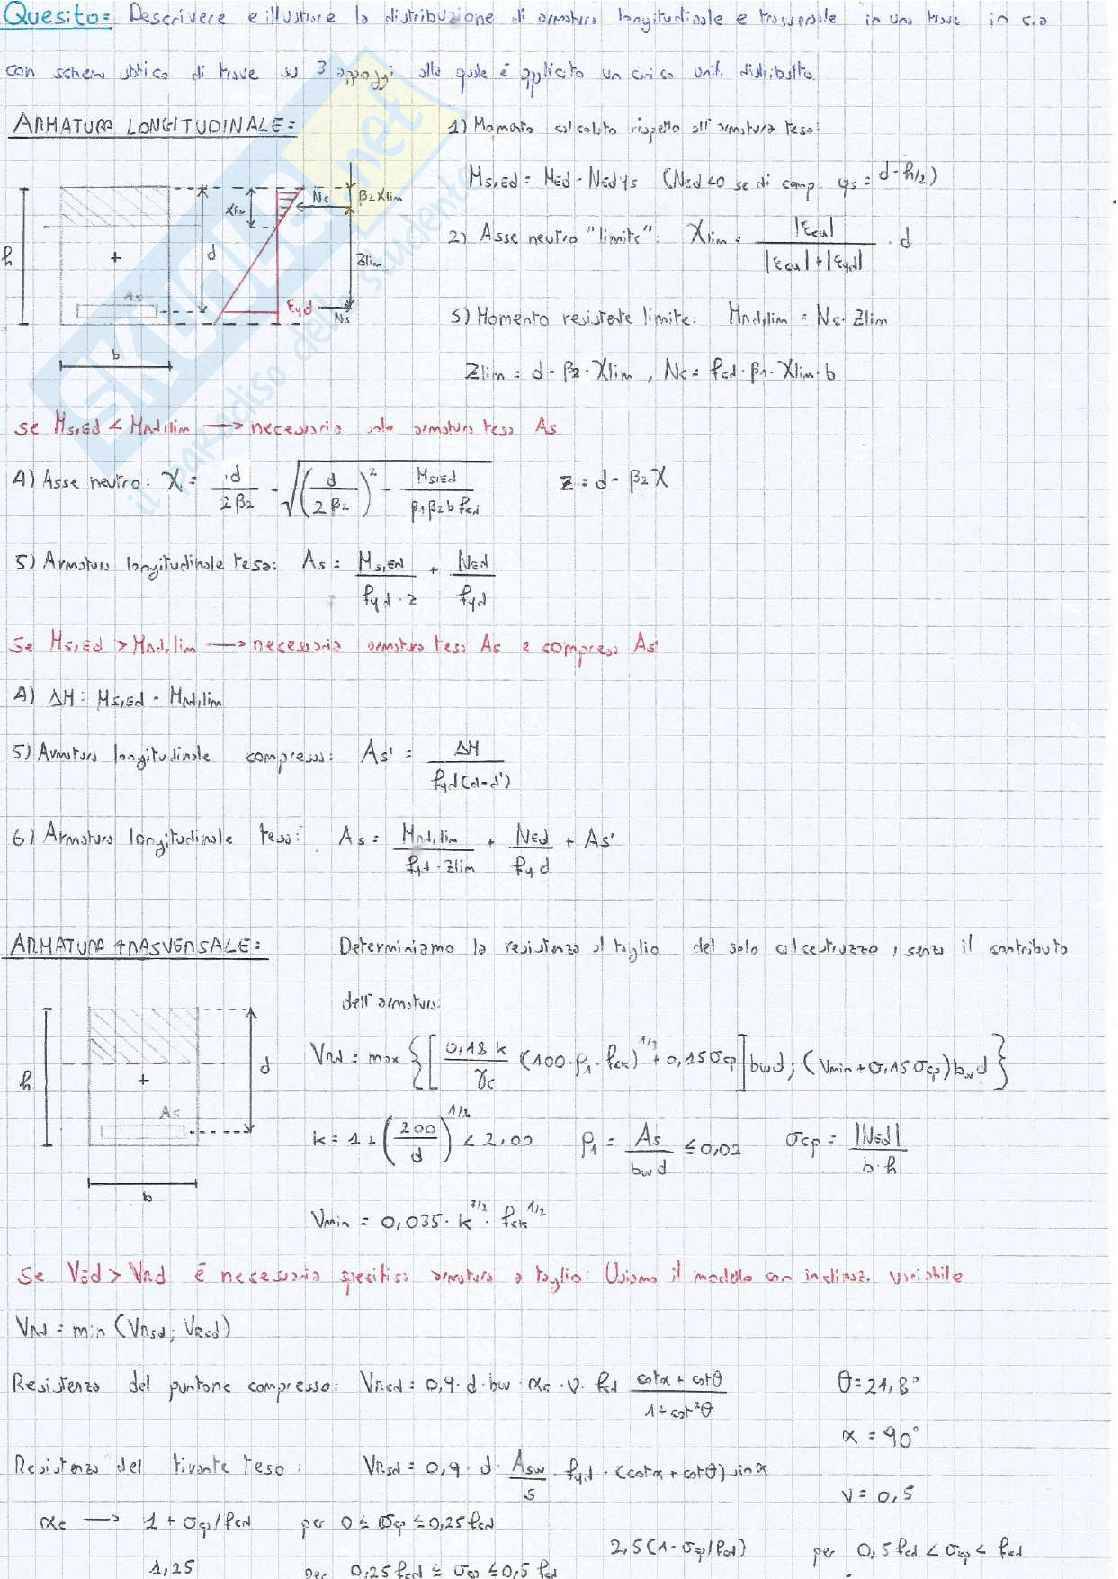 Quesito: Descrivere e illustrare la distribuzione di armatura longitudinale e trasversale in una trave in c.a
con schema statico di trave su 3 appoggi alla quale è applicato un carico unif. distribuito.
ARMATURA LONGITUDINALE:
1) Momento calcolato rispetto all'armatura tesa:
Ms,Ed = MEd - NEd ys (NEd<0 se di comp. ys = d-h/2)
h
xlim
d
Nc
β2 xlim
zlim
As
εyd
Ns
b
2) Asse neutro "limite": xlim = |εcu| / (|εcu| + |εyd|) · d
3) Momento resistente limite: MRd,lim = Nc · zlim
zlim = d - β2 · xlim , Nc = fcd · β1 · xlim · b
se Ms,Ed < MRd,lim → necessaria solo armatura tesa As
4) Asse neutro: x = d/(2β2) - √((d/(2β2))² - Ms,Ed/(β1 β2 b fcd)) z = d - β2 x
5) Armatura longitudinale tesa: As = Ms,Ed/(fyd · z) + NEd/fyd
Se Ms,Ed > MRd,lim → necessaria armatura tesa As e compressa As'
4) ΔM = Ms,Ed - MRd,lim
5) Armatura longitudinale compressa: As' = ΔM / (fyd(d-d'))
6) Armatura longitudinale tesa: As = MRd,lim/(fyd · zlim) + NEd/fyd + As'
ARMATURA TRASVERSALE:
Determiniamo la resistenza al taglio del solo calcestruzzo, senza il contributo
dell'armatura:
h
d
As
b
VRd = max {[0,18 k/γc (100 · ρ1 · fck)^1/3 + 0,15 σcp] bw d; (Vmin + 0,15 σcp) bw d}
k = 1 + (200/d)^1/2 < 2,00 ρ1 = As/(bw d) ≤ 0,02 σcp = |NEd|/(b·h)
Vmin = 0,035 · k^3/2 · fck^1/2
Se VEd > VRd è necessaria specifica armatura a taglio: Usiamo il modello con inclinaz. variabile
VRd = min (VRsd; VRcd)
Resistenza del puntone compresso: VRcd = 0,9 · d · bw · αc · ν · fcd (cotα + cotθ)/(1 + cot²θ) θ = 21,8°
α = 90°
Resistenza del tirante teso: VRsd = 0,9 · d · Asw/s · fyd · (cotα + cotθ) sinα
ν = 0,5
αc → 1 + σcp/fcd per 0 ≤ σcp ≤ 0,25 fcd
2,5(1 - σcp/fcd) per 0,5 fcd < σcp < fcd
1,25 per 0,25 fcd ≤ σcp ≤ 0,5 fcd
SKUOLA.net
il paradiso dello studente